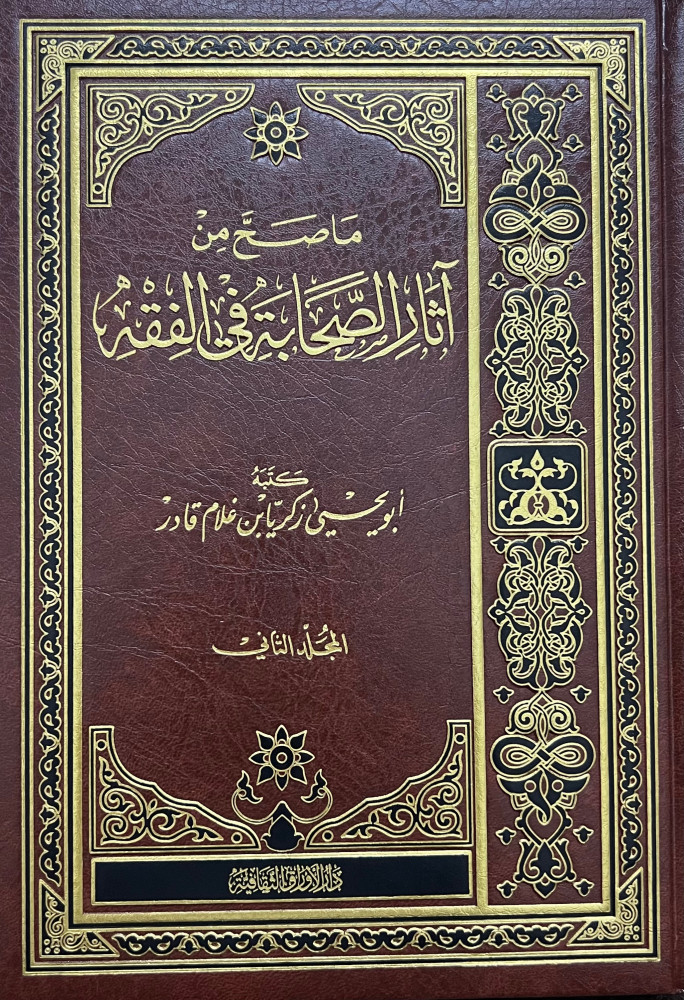 مَا صَحَّ مِنْ
آثَارِ الصَّحَابَةِ فِي الفِقْهِ
كَتَبَهُ
أبو يحيىٰ زكريّا بْن غلام قادر
المجُلّد الثّاني
دار الأوراق الثقافية